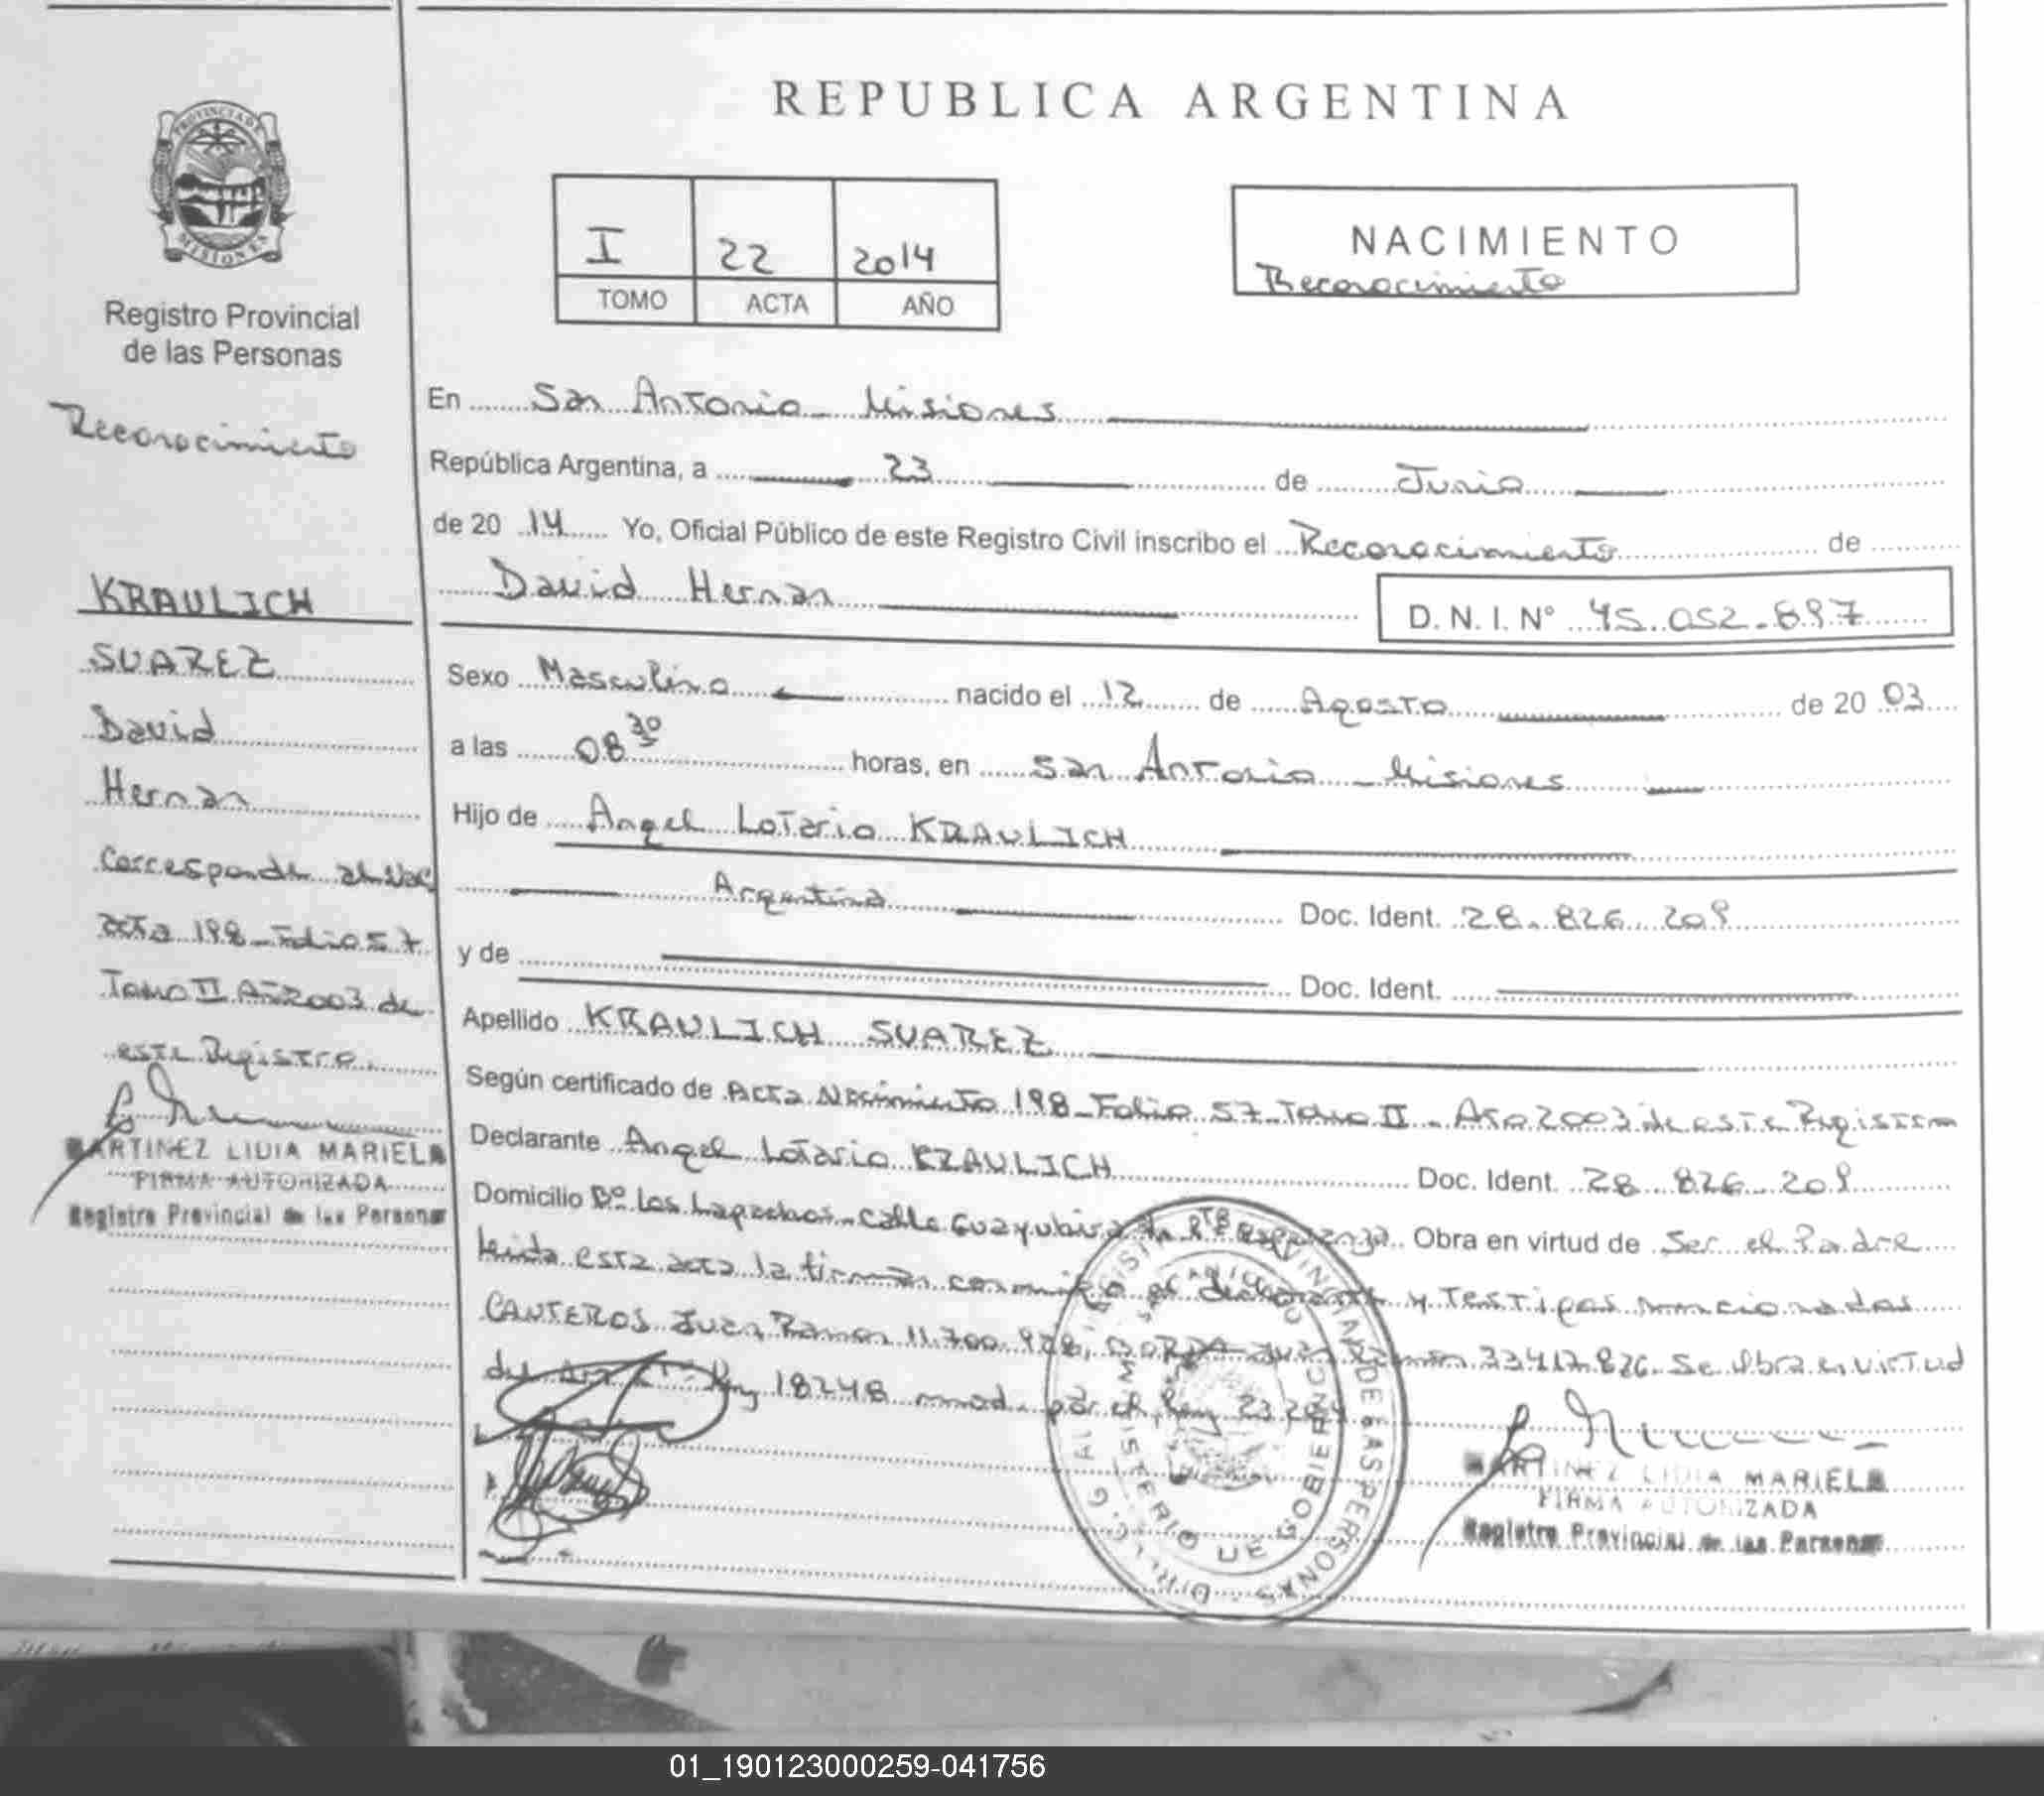 REPUBLICA ARGENTINA
PROVINCIA DE
MISIONES
Registro Provincial
de las Personas
Reconocimiento
KRAULICH
SUAREZ
David
Hernan
Corresponde al Nac
acta 198 - Folio 57
Tomo II Año 2003 de
este Registro.
MARTINEZ LIDIA MARIELA
FIRMA AUTORIZADA
Registro Provincial de las Personas
I 22 2014
TOMO ACTA AÑO
NACIMIENTO
Reconocimiento
En San Antonio - Misiones
República Argentina, a 23 de Junio
de 20 14 Yo, Oficial Público de este Registro Civil inscribo el Reconocimiento de
David Hernan D. N. I. N° 45.052.897
Sexo Masculino nacido el 12 de Agosto de 20 03
a las 08 30 horas, en San Antonio - Misiones
Hijo de Angel Lotario KRAULICH
Argentina Doc. Ident. 28.826.209
y de Doc. Ident.
Apellido KRAULICH SUAREZ
Según certificado de Acta Nacimiento 198 - Folio 57 - Tomo II - Año 2003 de este Registro
Declarante Angel Lotario KRAULICH Doc. Ident. 28.826.209
Domicilio B° Los Lapachos - calle Guayubira Pto Esperanza Obra en virtud de Ser el Padre
leida esta acta la firman conmigo el declarante y Testigos mencionados
CANTEROS Juan Ramon 11.700.928, Juan Ramon 33.417.826. Se obra en virtud
del Art Ley 18248 mod. por el Ley 23.264
DIR. GRAL REGISTRO PROVINCIAL DE LAS PERSONAS
MINISTERIO DE GOBIERNO
MARTINEZ LIDIA MARIELA
FIRMA AUTORIZADA
Registro Provincial de las Personas
01_190123000259-041756